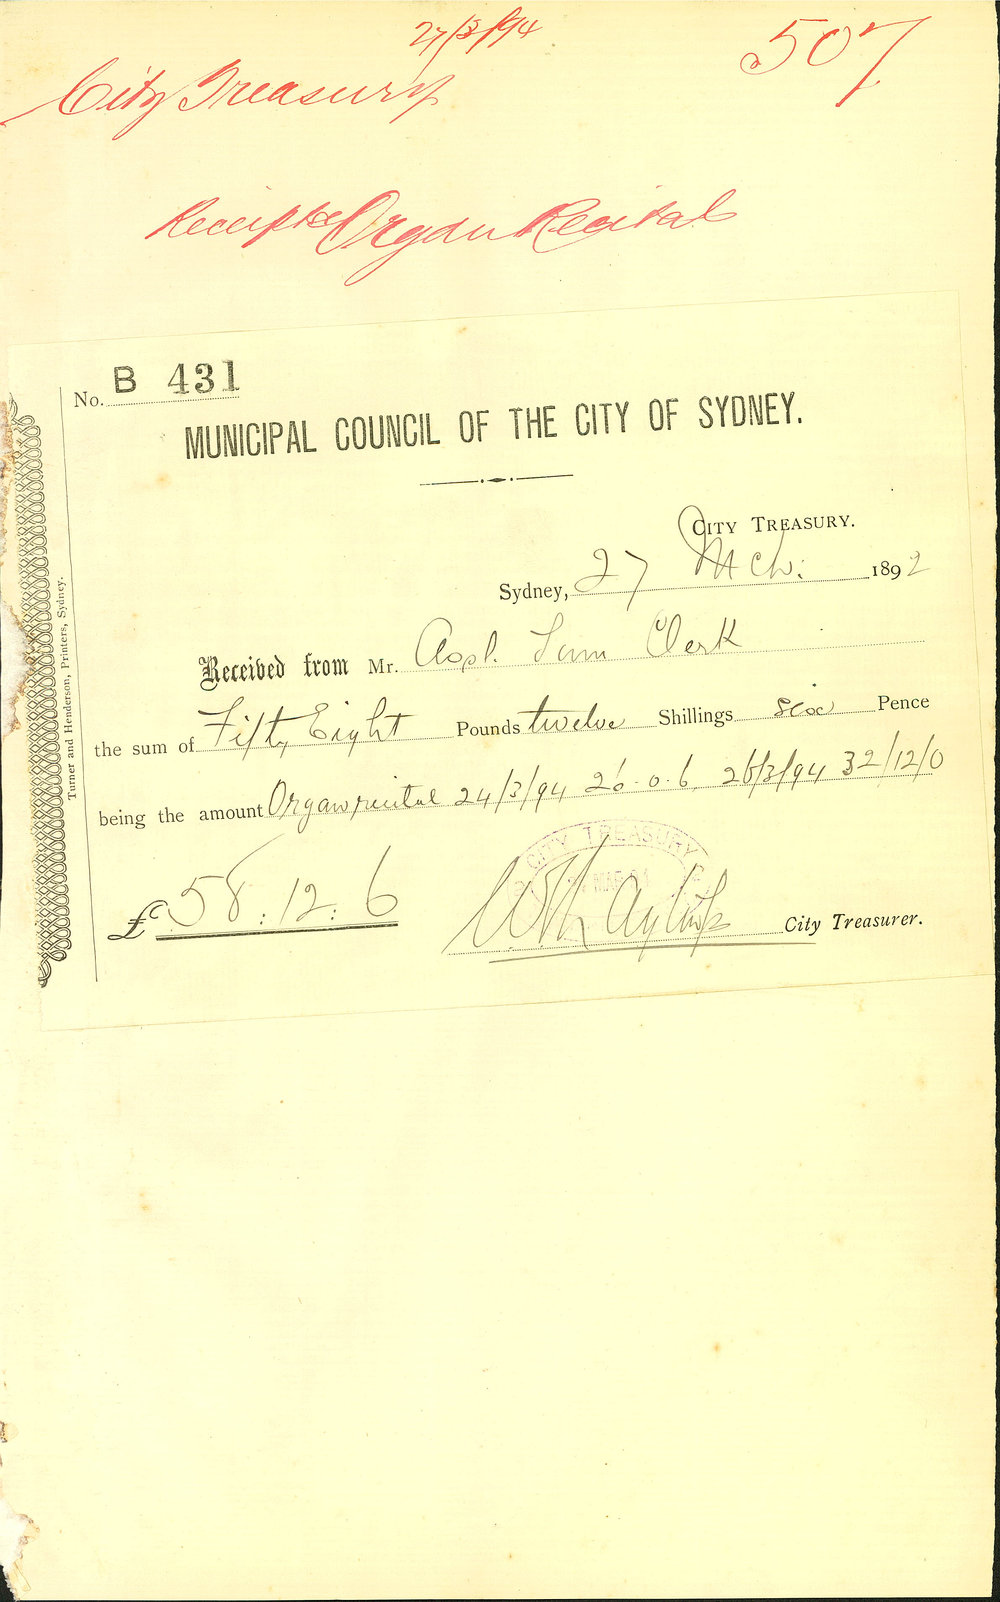 27/3/94
507
City Treasury
Receipts Organ Recital
No. B 431
MUNICIPAL COUNCIL OF THE CITY OF SYDNEY.
CITY TREASURY.
Sydney, 27 Mch: 1892
Received from Mr. Assl. Town Clerk
the sum of Fifty Eight Pounds twelve Shillings six Pence
being the amount Organ recital 24/3/94 26-0-6. 26/3/94 32/12/0
£ 58:12:6
CITY TREASURY
City Treasurer.
Turner and Henderson, Printers, Sydney.